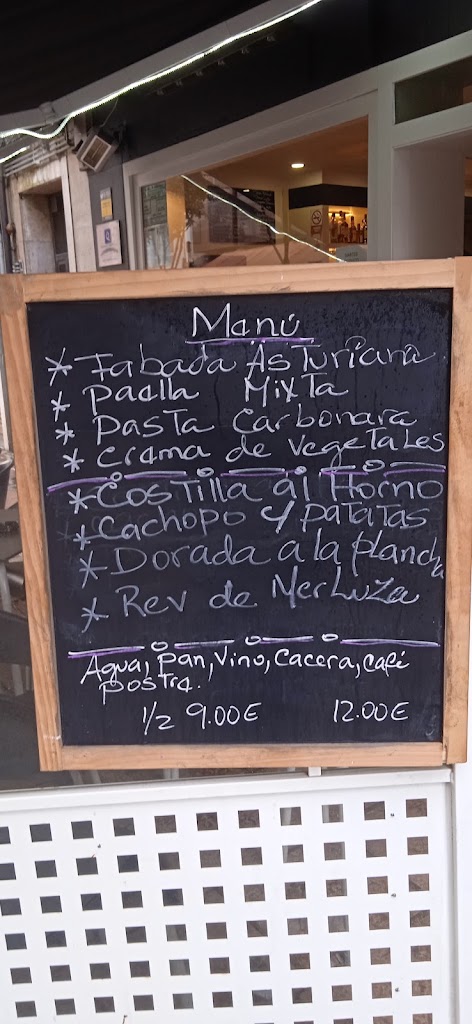 Menú
* Fabada Asturiana
* Paella Mixta
* Pasta Carbonara
* Crema de Vegetales
* Costilla al Horno
* Cachopo y patatas
* Dorada a la plancha
* Rev de Merluza
Agua, pan, vino, cacera, café
postre.
1/2 9.00€ 12.00€